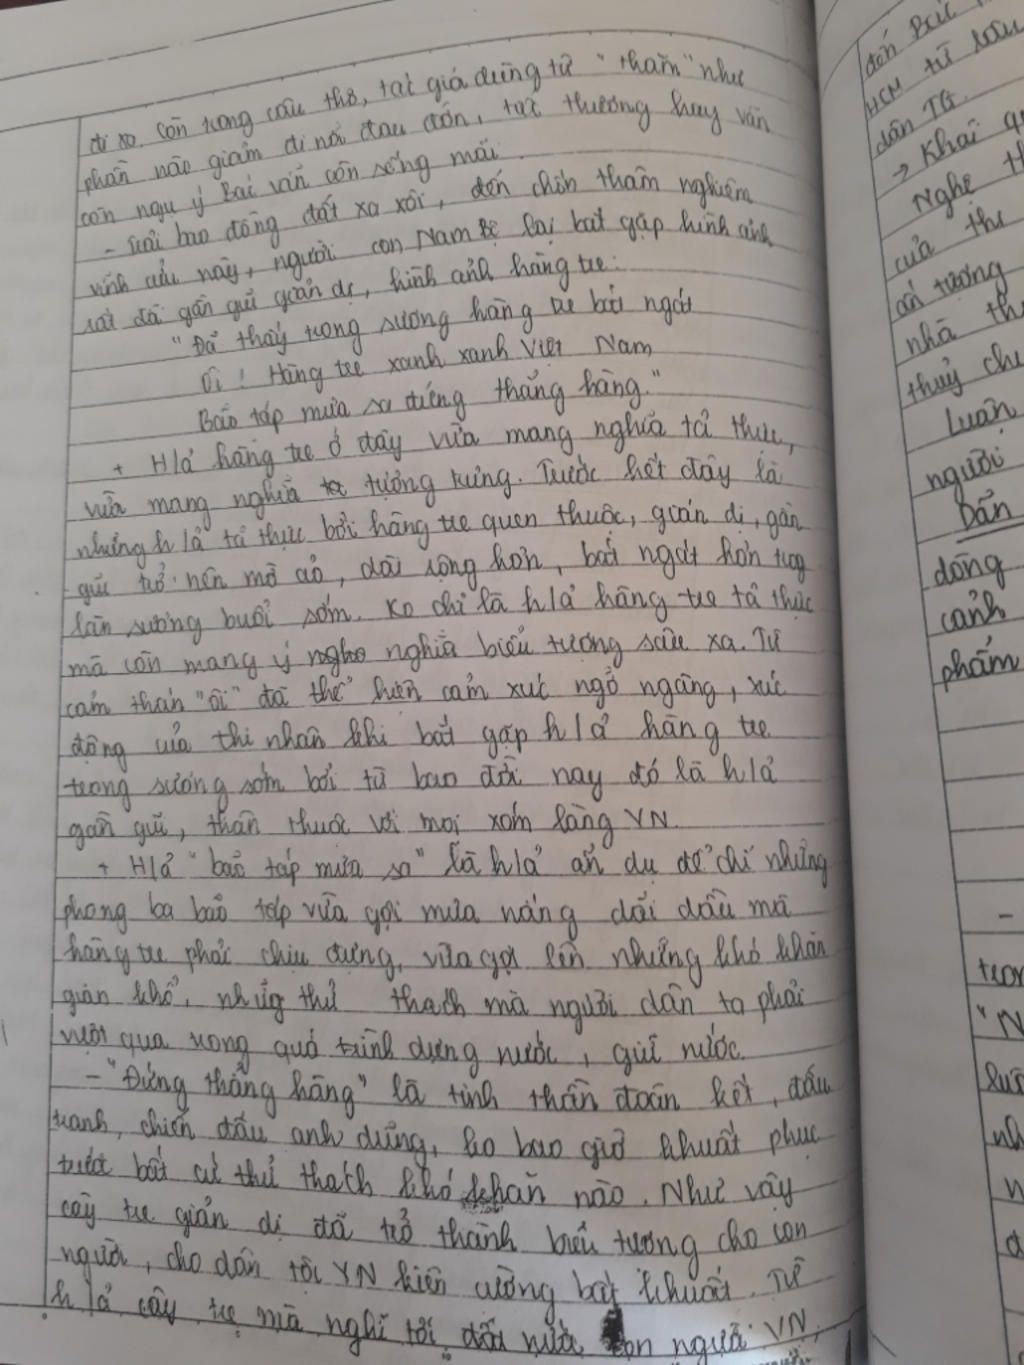 đi xa. Còn trong câu thơ, tác giả dùng từ "thăm" như
phần nào giảm đi nỗi đau đớn, tạc thương hay vẫn
còn ngụ ý Bác vẫn còn sống mãi.
- Trải bao đồng đất xa xôi, đến chốn thăm nghiêm
vĩnh cửu này, người con Nam Bộ lại bắt gặp hình ảnh
rất đỗi gần gũi giản dị, hình ảnh hàng tre:
"Đã thấy trong sương hàng tre bát ngát
Ôi! Hàng tre xanh xanh Việt Nam
Bão táp mưa sa đứng thẳng hàng."
+ H/ả hàng tre ở đây vừa mang nghĩa tả thực,
vừa mang nghĩa tượng trưng. Trước hết đây là
những h/ả tả thực bởi hàng tre quen thuộc, giản dị, gần
gũi trở nên mờ ảo, dài rộng hơn, bát ngát hơn trog
làn sương buổi sớm. Ko chỉ là h/ả hàng tre tả thực
mà còn mang ý nghĩa biểu tượng sâu xa. Từ
cảm thán "ôi" đã thể hiện cảm xúc ngỡ ngàng, xúc
động của thi nhân khi bắt gặp h/ả hàng tre
trong sương sớm bởi từ bao đời nay đó là h/ả
gần gũi, thân thuộc với mọi xóm làng VN.
+ H/ả "bão táp mưa sa" là h/ả ẩn dụ để chỉ những
phong ba bão táp vừa gợi mưa nắng dãi dầu mà
hàng tre phải chịu đựng, vừa gợi lên những khó khăn
gian khổ, nhữg thử thách mà người dân ta phải
vượt qua trong quá trình dựng nước, giữ nước.
- "Đứng thẳng hàng" là tinh thần đoàn kết, đấu
tranh, chiến đấu anh dũng, ko bao giờ khuất phục
trước bất cứ thử thách khó khăn nào. Như vậy
cây tre giản dị đã trở thành biểu tượng cho con
người, cho dân tộc VN kiên cường bất khuất. Từ
h/ả cây tre mà nghĩ tới đất nước con người VN,
đến Bác
HCM từ lâu
dân TG.
→ Khái
Nghệ
của thi
ấn tượng
nhà
thuỷ
Luận
người
Dẫn
đồng
cảnh
phẩm
-
"N